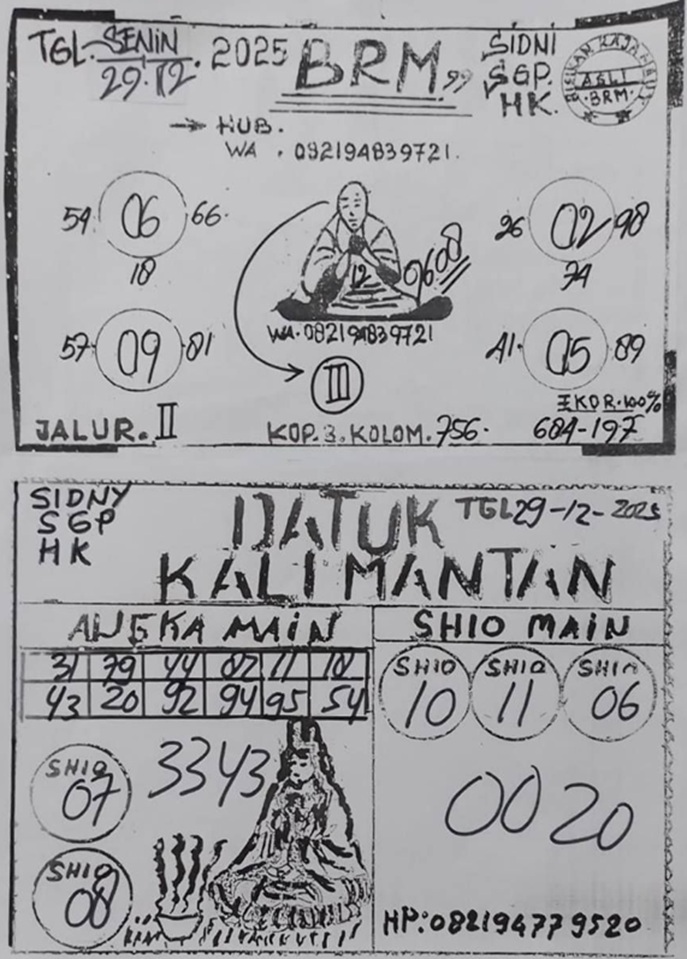 TGL. SENIN 29.12. 2025 BRM ,, SIDNI
SGP.
HK.
ASLI
BRM
→ HUB.
WA . 082194839721.
54 06 66.
18
26 02 98
74
12 0608
57 09 81
WA. 082194839721
III
41. 05 89
EKOR. 100%
JALUR. II KOP. 3. KOLOM. 756. 684-197
SIDNY
SGP
HK
DATUK
KALIMANTAN
TGL 29-12-2025
ANGKA MAIN
31 79 44 82 11 18
43 20 92 94 95 54
SHIO 07
3343
SHIO 08
SHIO MAIN
SHIO 10
SHIO 11
SHIO 06
0020
HP: 082194779520